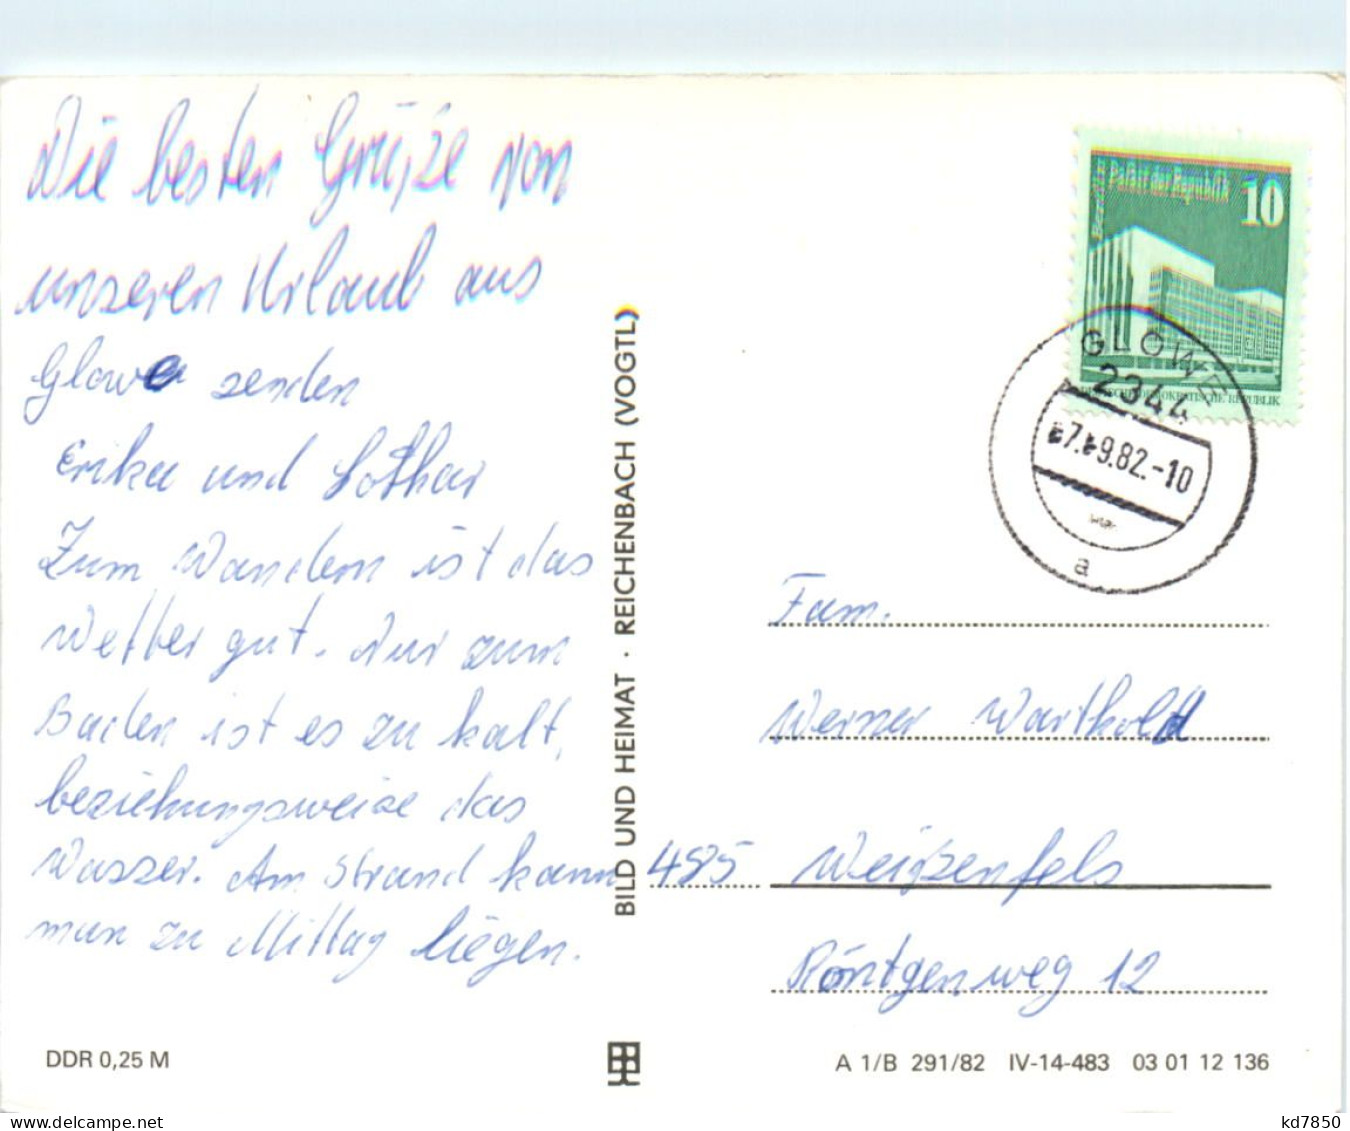 Die besten Grüße von
unseren Urlaub aus
Glowe senden
Erika und Lothar
Zum Wandern ist das
Wetter gut. Nur zum
Baden ist es zu kalt,
beziehungsweise das
Wasser. Am Strand kann
man zu Mittag liegen.
DDR 0,25 M
BILD UND HEIMAT · REICHENBACH (VOGTL)
Palast der Republik
10
DEUTSCHE DEMOKRATISCHE REPUBLIK
GLOWE
2344
-7.-9.82.-10
a
Fam.
Werner Warthold
485 Weißenfels
Röntgenweg 12
A 1/B 291/82 IV-14-483 03 01 12 136
www.delcampe.net
kd7850